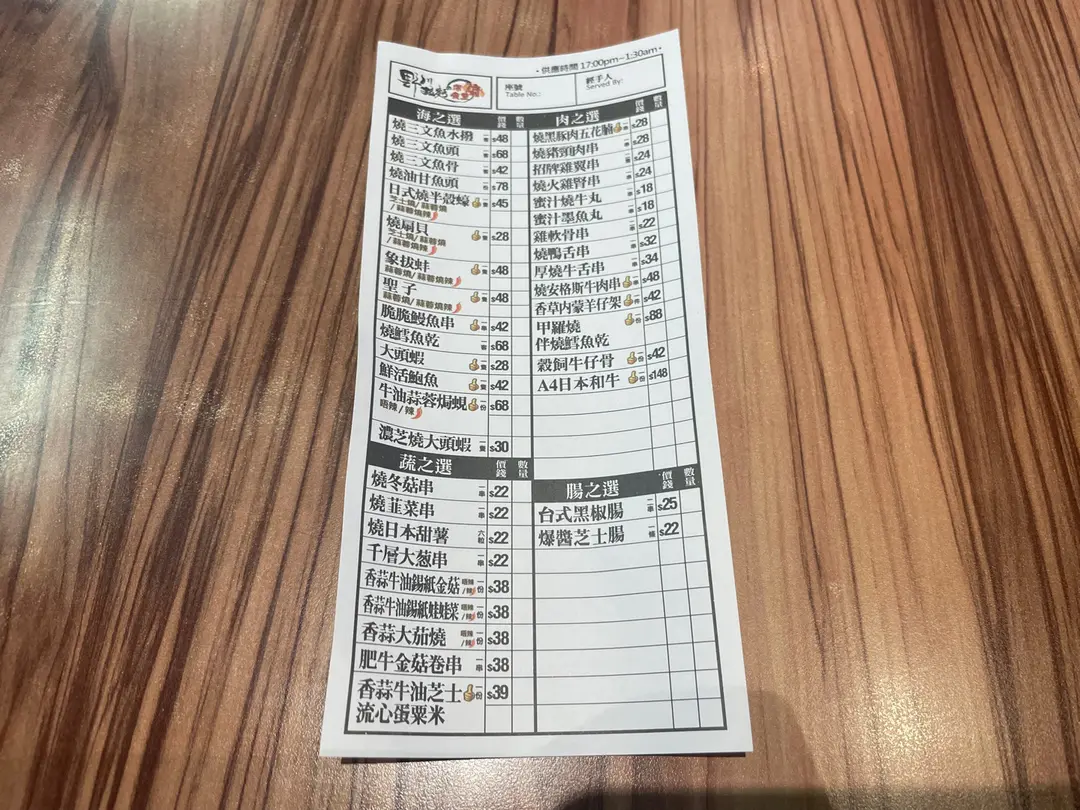 •供應時間 17:00pm~1:30am•
座號
Table No.:
經手人
Served By:
海之選 價錢 數量
燒三文魚水撈 $48
燒三文魚頭 $68
燒三文魚骨 $42
燒油甘魚頭 一份 $78
日式燒半殼蠔 一隻 $45
芝士燒/蒜蓉燒
/蒜蓉燒辣
燒扇貝 一隻 $28
芝士燒/蒜蓉燒
/蒜蓉燒辣
象拔蚌 一隻 $48
蒜蓉燒/蒜蓉燒辣
聖子 一隻 $48
蒜蓉燒/蒜蓉燒辣
脆脆鰻魚串 一串 $42
燒鱈魚乾 $68
大頭蝦 一隻 $28
鮮活鮑魚 一隻 $42
牛油蒜蓉焗蜆 一份 $68
唔辣/辣
濃芝燒大頭蝦 一隻 $30
蔬之選 價錢 數量
燒冬菇串 一串 $22
燒韭菜串 一串 $22
燒日本甜薯 六粒 $22
千層大葱串 一串 $22
香蒜牛油錫紙金菇 唔辣/辣 一份 $38
香蒜牛油錫紙娃娃菜 唔辣/辣 一份 $38
香蒜大茄燒 唔辣/辣 一份 $38
肥牛金菇卷串 一串 $38
香蒜牛油芝士 一份 $39
流心蛋粟米
肉之選 價錢 數量
燒黑豚肉五花腩 $28
燒豬頸肉串 一串 $28
招牌雞翼串 一串 $24
燒火雞腎串 一串 $24
蜜汁燒牛丸 一串 $18
蜜汁墨魚丸 一串 $18
雞軟骨串 一串 $22
燒鴨舌串 一串 $32
厚燒牛舌串 一串 $34
燒安格斯牛肉串 一串 $48
香草内蒙羊仔架 一件 $42
甲羅燒 一份 $88
伴燒鱈魚乾
穀飼牛仔骨 一份 $42
A4日本和牛 一份 $148
腸之選 價錢 數量
台式黑椒腸 一串 $25
爆醬芝士腸 一條 $22